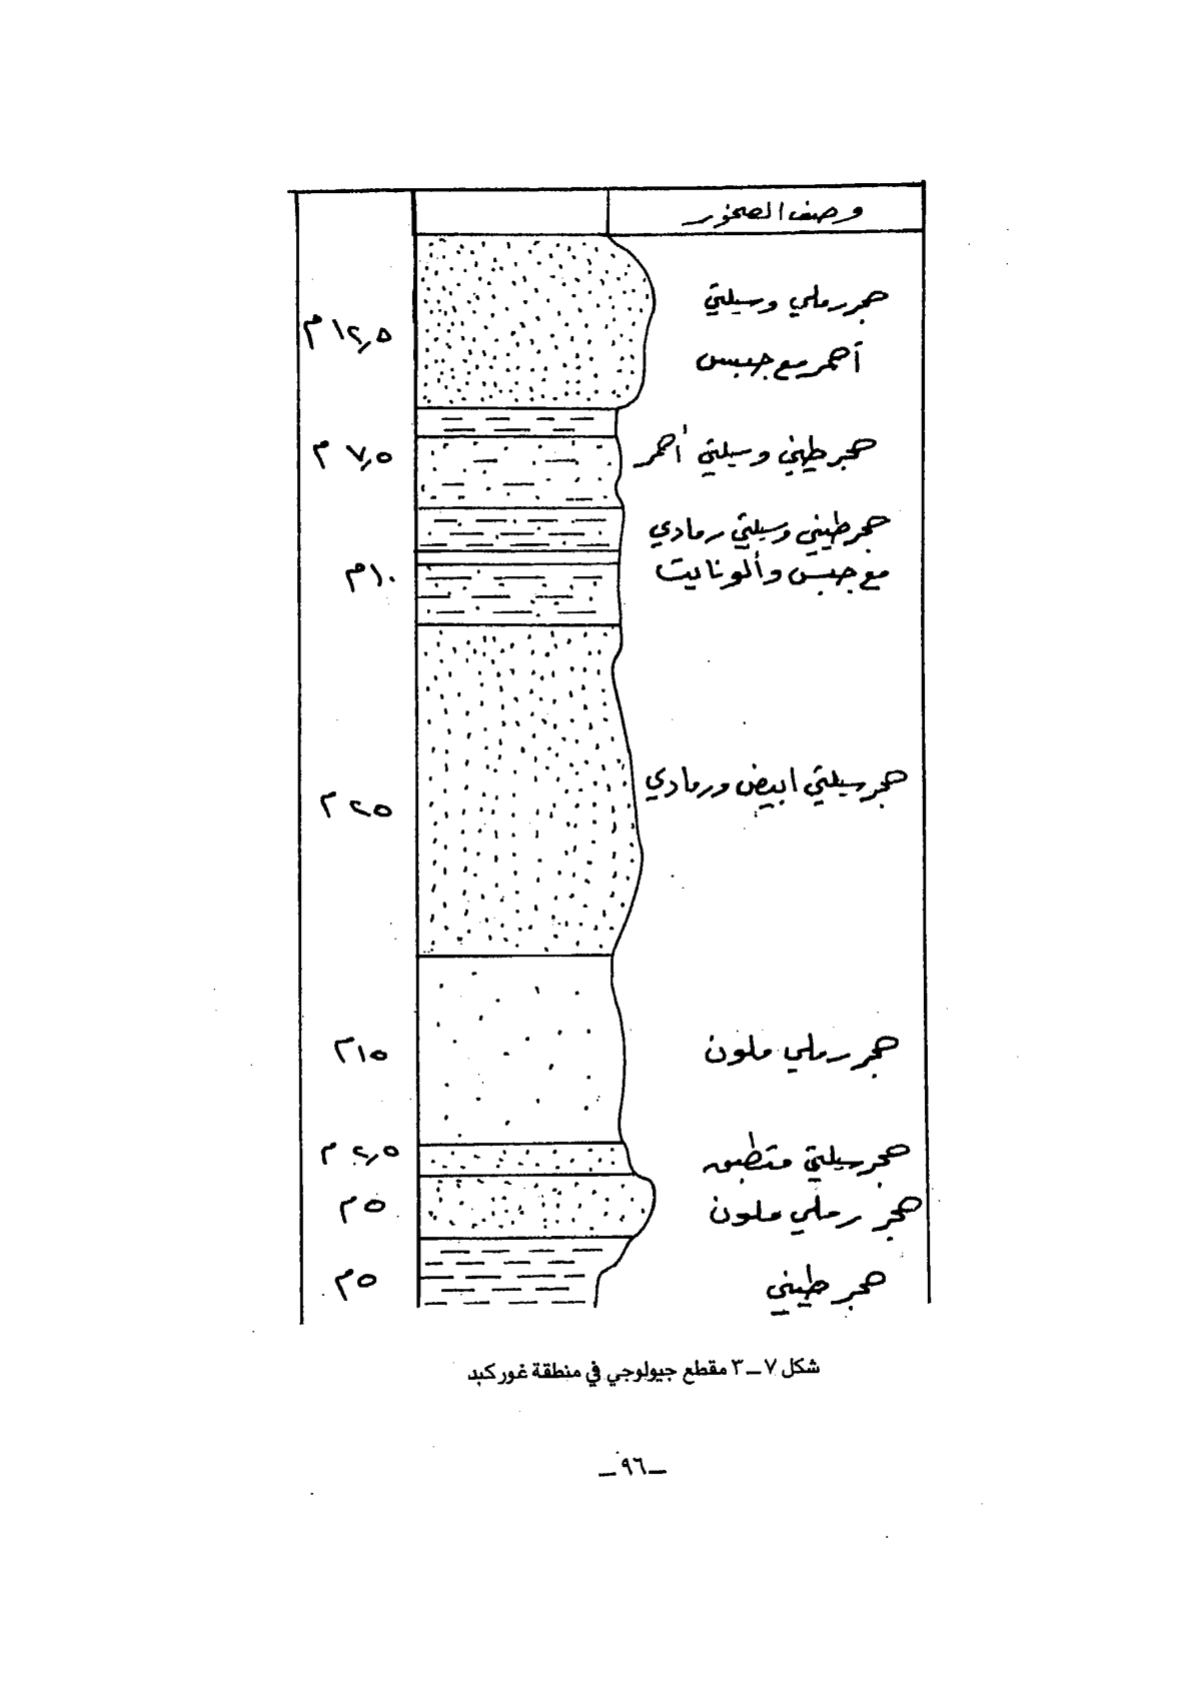 وصف الصخور
حجر رملي وسيلتي
١٢,٥ م
أحمر مع جبس
حجر طيني وسيلتي أحمر
٧,٥ م
حجر طيني وسيلتي رمادي
مع جبس وألونايت
١٠ م
حجر سيلتي ابيض ورمادي
٢٥ م
حجر رملي ملون
١٥ م
حجر سيلتي متطبق
٢,٥ م
حجر رملي ملون
٥ م
حجر طيني
٥ م
شكل ٧ــ٣ مقطع جيولوجي في منطقة غور كبد
ــ٩٦ــ